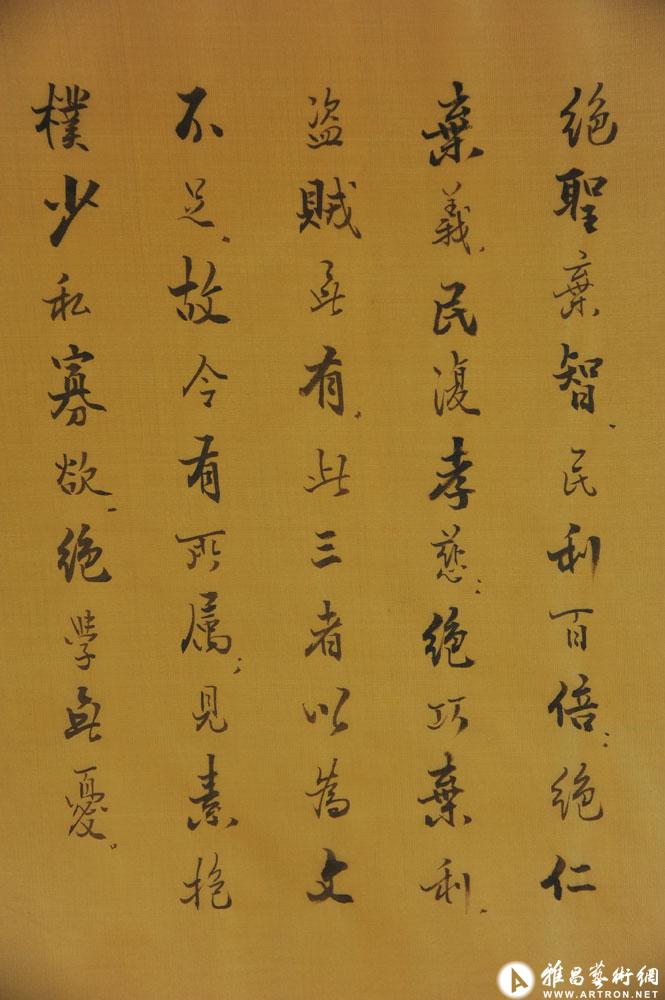 绝聖棄智、民利百倍；绝仁
棄義、民復孝慈；绝巧棄利、
盗賊無有。此三者以為文
不足、故令有所属；見素抱
樸少私寡欲、绝學無憂。
雅昌藝術網
WWW.ARTRON.NET